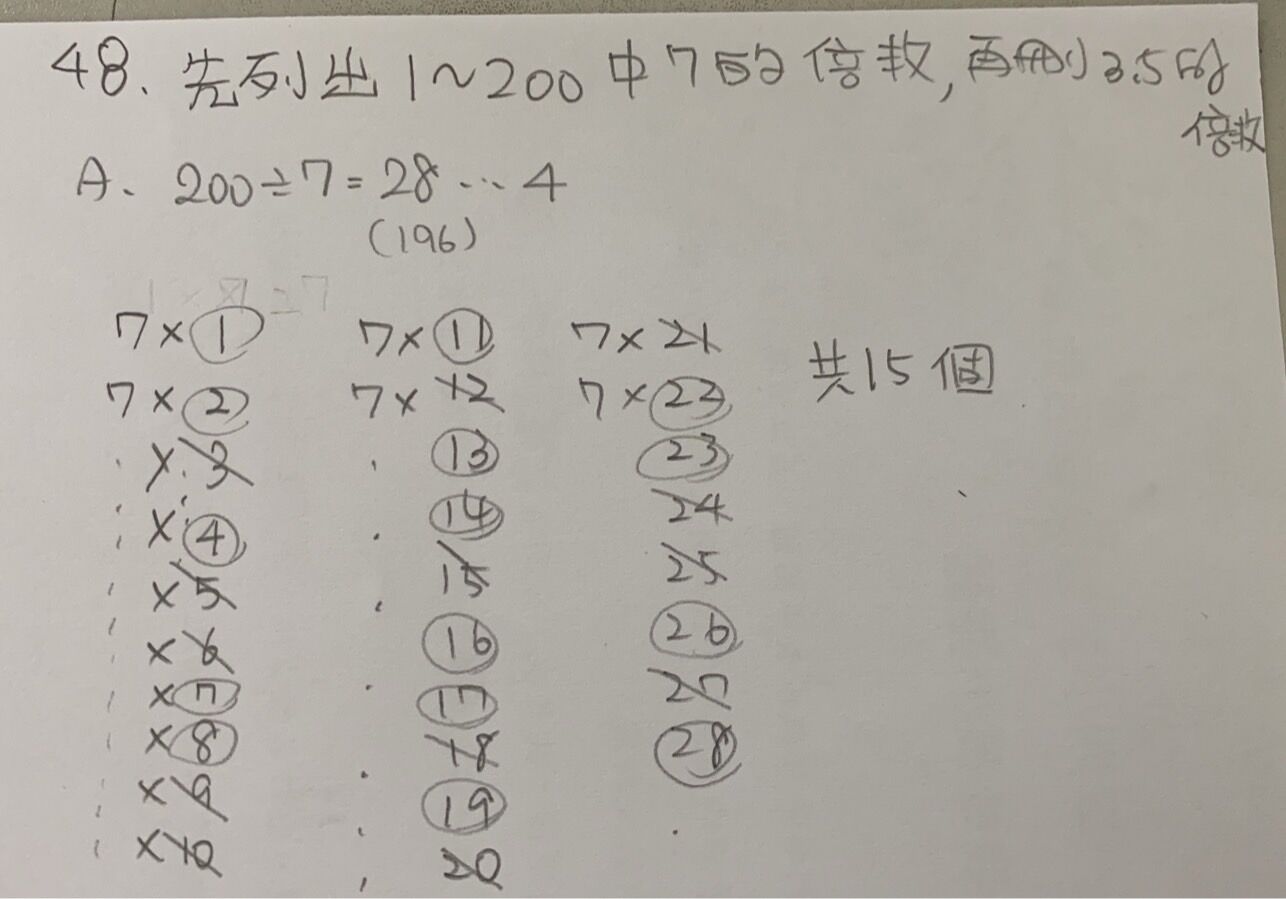 48. 先列出1~200中7的倍數,再刪3.5的
倍數
A、 200÷7=28…4
(196)
7×1 7×11 7×21 共15個
7×2 7×12 7×23
×3 13 23
×4 14 24
×5 15 25
×6 16 26
×7 17 27
×8 18 28
×9 19
×10 20